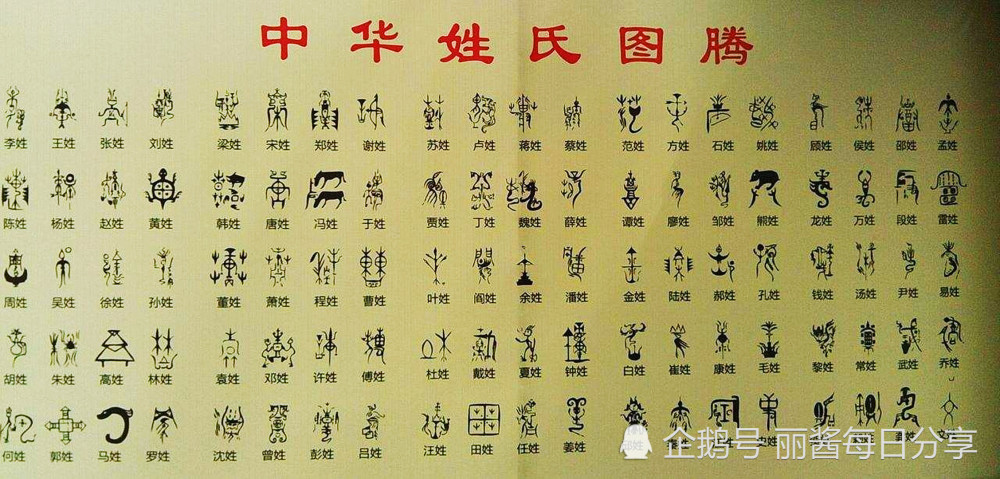 中华姓氏图腾
李姓 王姓 张姓 刘姓 梁姓 宋姓 郑姓 谢姓 苏姓 卢姓 蒋姓 蔡姓 范姓 方姓 石姓 姚姓 顾姓 侯姓 邵姓 孟姓
陈姓 杨姓 赵姓 黄姓 韩姓 唐姓 冯姓 于姓 贾姓 丁姓 魏姓 薛姓 谭姓 廖姓 邹姓 熊姓 龙姓 万姓 段姓 雷姓
周姓 吴姓 徐姓 孙姓 董姓 萧姓 程姓 曹姓 叶姓 阎姓 余姓 潘姓 金姓 陆姓 郝姓 孔姓 钱姓 汤姓 尹姓 易姓
胡姓 朱姓 高姓 林姓 袁姓 邓姓 许姓 傅姓 杜姓 戴姓 夏姓 钟姓 白姓 崔姓 康姓 毛姓 黎姓 常姓 武姓 乔姓
何姓 郭姓 马姓 罗姓 沈姓 曾姓 彭姓 吕姓 汪姓 田姓 任姓 姜姓
企鹅号 丽酱每日分享